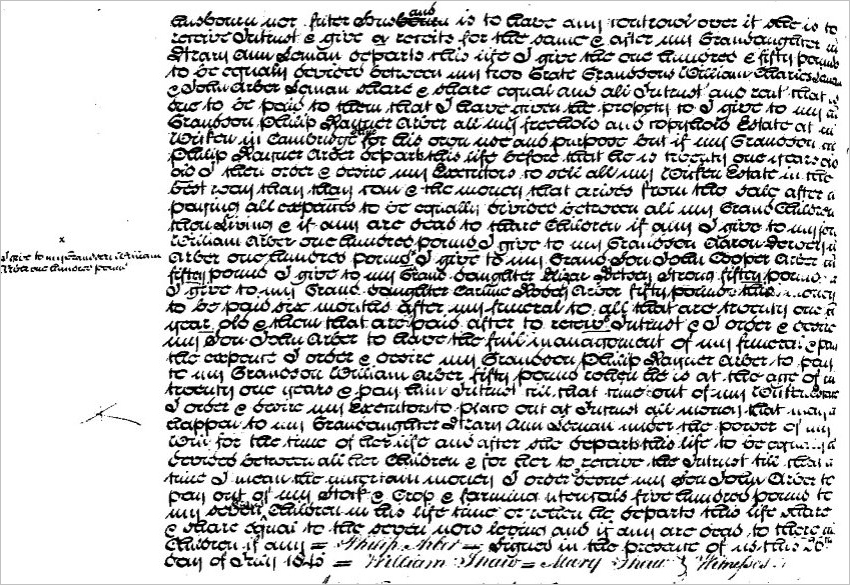 husbourn nor future husbourn and is to have any controul over it she is to
receive Intrust & give a receits for the same & after my Grandaughter
Mary Ann Leman departs this life I give the one hundred & fifty pounds
to be equaly devided between my two Grate Grandsons William Charles Leman
& John Arber Leman share & share equal and all Intrust and rent that is
due to be paid to them that I have given the property to I give to my
Grandson Philip Rayner Arber all my freehold and copyhold Estate at
Wicken in Cambridge for his own use and purpose but if my Grandson
Philip Rayner Arber departs this life before that he is twenty one years old
I then order & desire my Executors to sell all my Wicken Estate in the
best way than they can & the money that arises from the sale after
paying all expences to be equally divided between all my Grand Children
then living & if any are dead to thare Children if any I give to my son
William Arber one hundred pounds I give to my Grandson Aaron
Arber one hundred pounds I give to my Grand Son John Cooper Arber
fifty pounds I give to my Grand daughter Elizar Strong fifty pounds
I give to my Grand daughter Arber fifty pounds this money
to be paid six months after my funeral to all that are twenty one
year old & them that are paid after to receive Intrust & I order & desire
my Son John Arber to have the full management of my funeral & pay
the expence I order & desire my Grandson Philip Rayner Arber to pay
to my Grandson William Arber fifty pound when he is at the age of
twenty one years & pay him Intrust till that time out of my Wicken Estate
I order & desire my Executors to place out at Intrust all money that may
happen to my Grandaughter Mary Ann Leman under the power of my
Will for the time of her life and after she departs this life to be equaly
devided between all her Children & for her to receive the Intrust till that
time I mean the money I order desire my Son John Arber to
pay out of my Stock & Crop & farming utensials five hundred pound to
my seven Children in this life time or when he departs this life share
& share equal to the seven now leving and if any are dead to there
Children if any = Philip Arber = Signed in the presence of us this
day of July 1843 = William Shaw = Mary Shaw } Witnesses
x
I give to my Grandson William
Arber one hundred pound